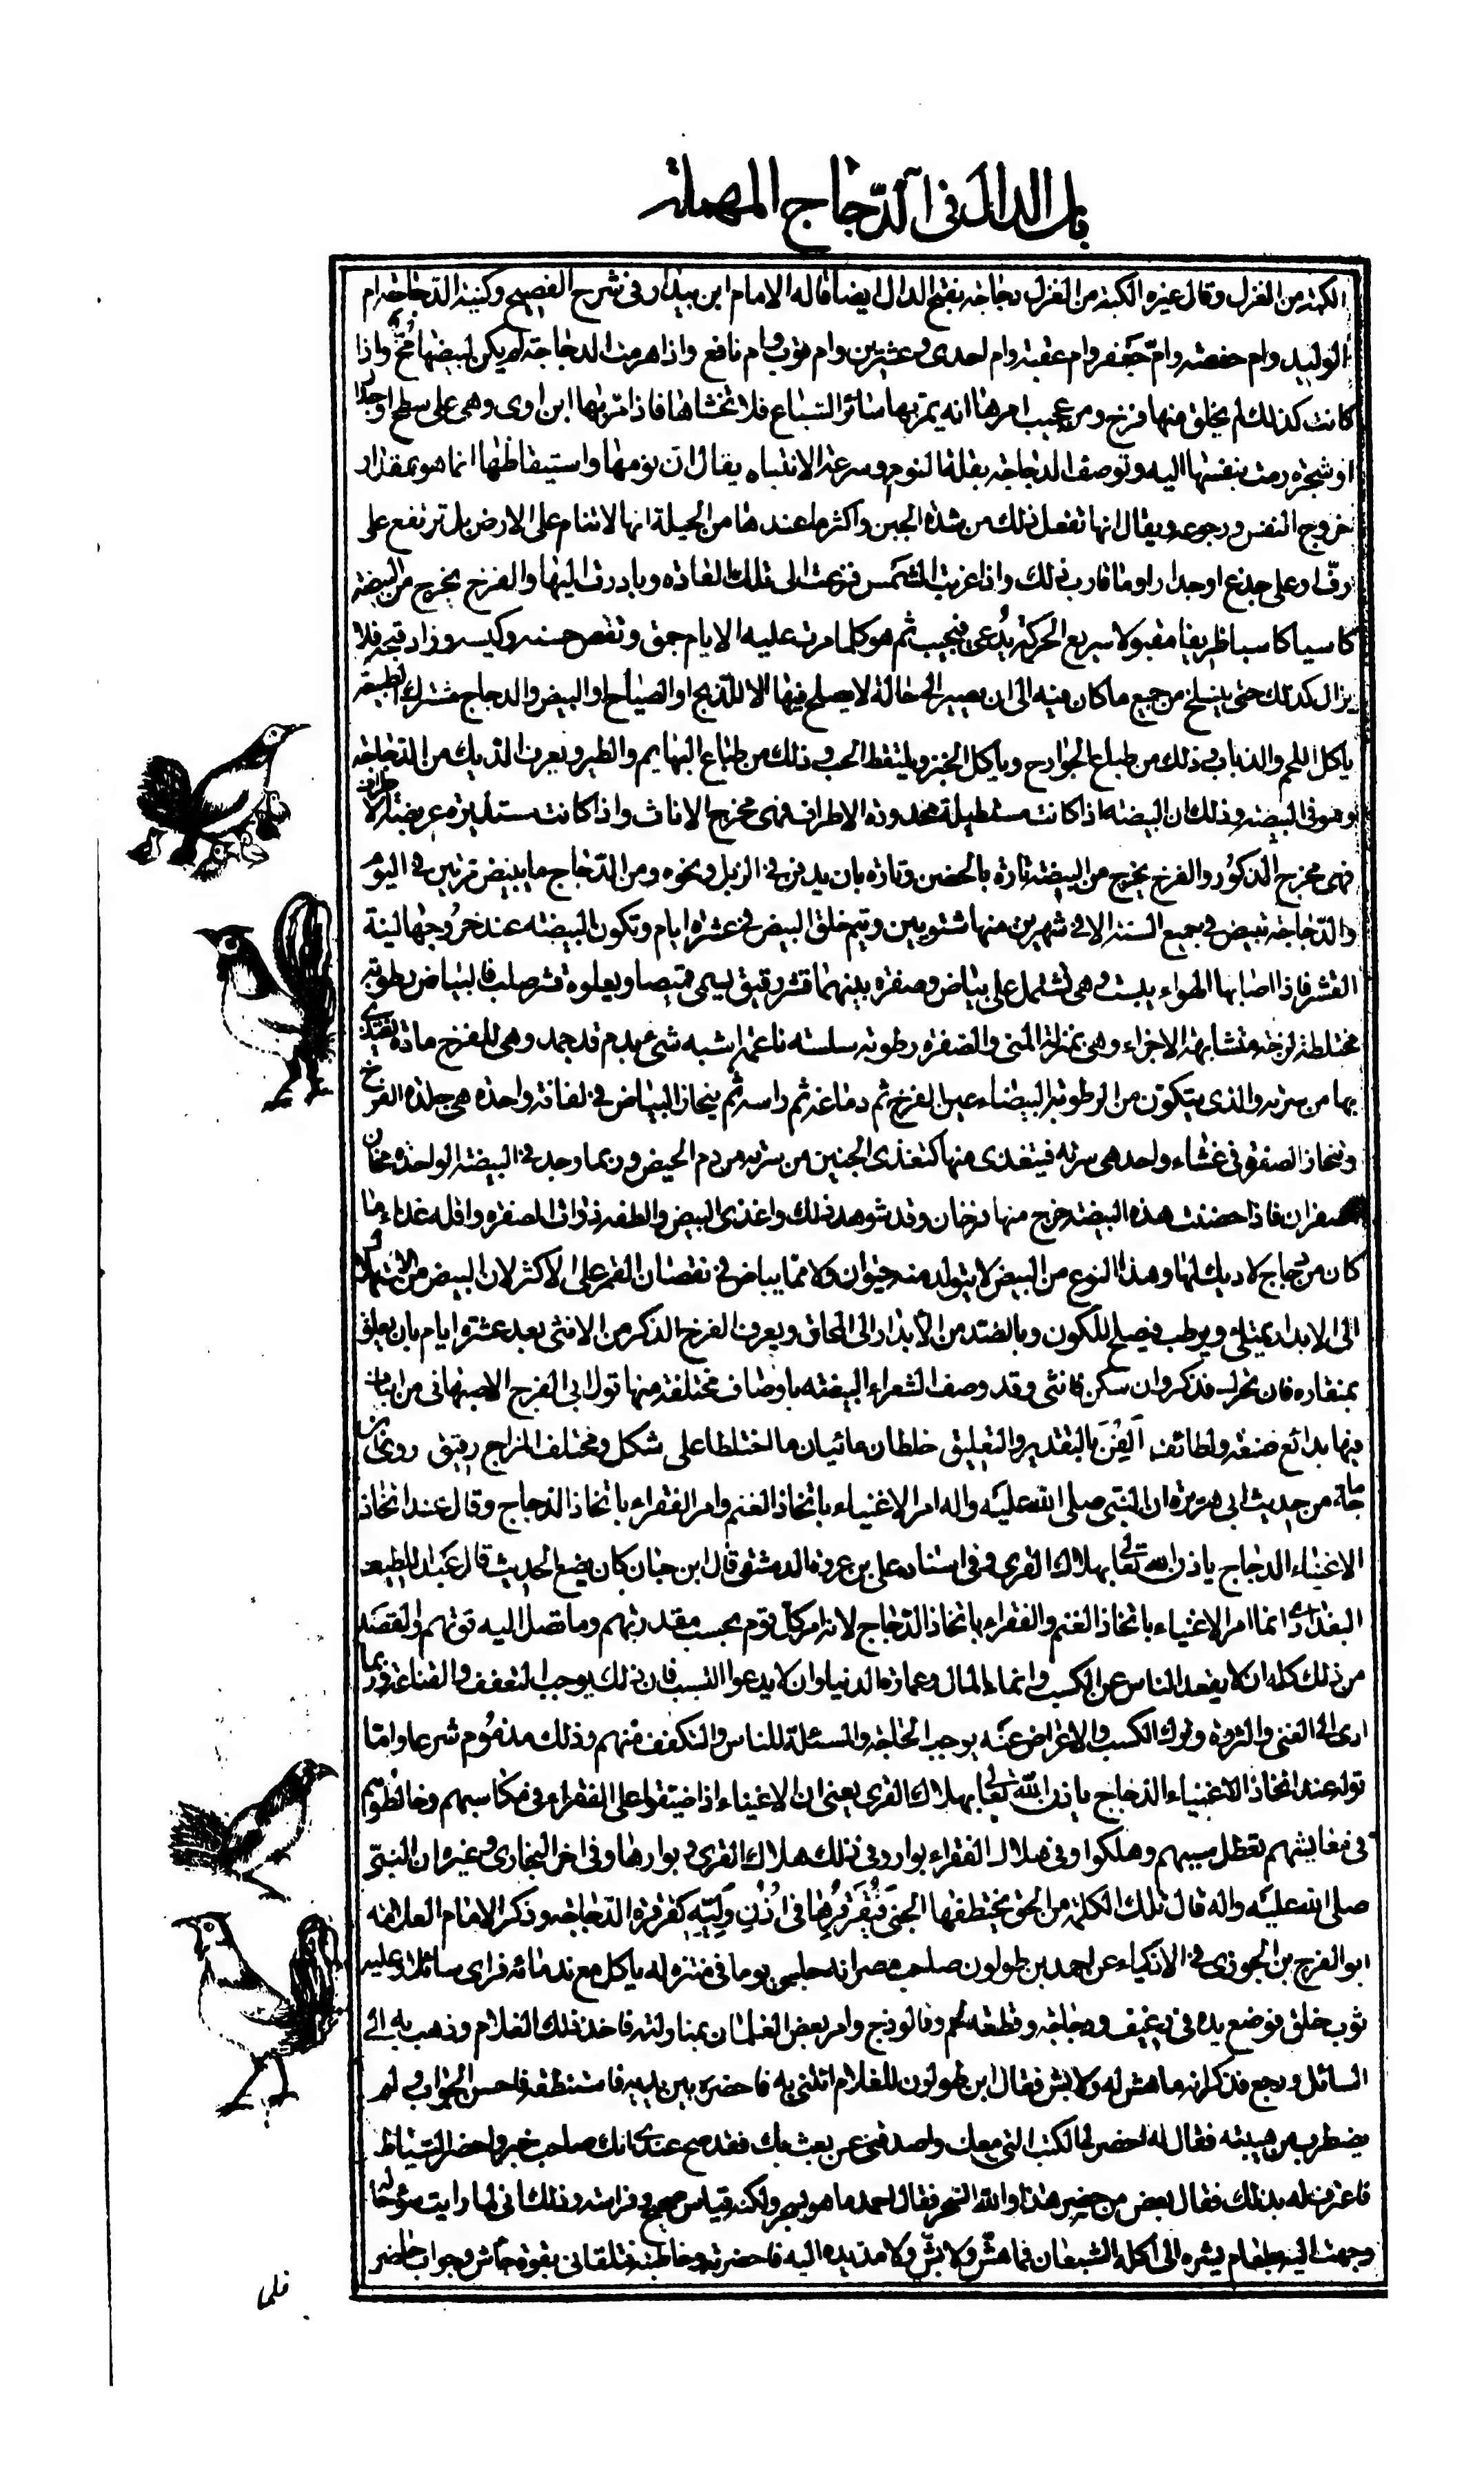 باب الدال فى الدّجاج المهملة
الكبة من الغزل وقال غيره الكبة من الغزل دجاجة بفتح الدال ايضا قاله الامام ابن بيدار فى شرح الفصيح وكنية الدّجاجة ام
الوليد وام حفصة وامّ جعفر وام عقبة وام احدى وعشرين وام قوب وام نافع واذا هرمت الدجاجة لم يكن لبيضها مُخّ واذا
كانت كذلك لم يخلق منها فرخ ومن عجيب امرها انه يمرّ بها سائر السّباع فلا تخشاها فاذا مرّ بها ابن اوى وهى على سطح او جدار
او شجرة رمت بنفسها اليه وتوصف الدجاجة بقلة النوم وسرعة الانتباه يقال ان نومها واستيقاظها انما هو بمقدار
خروج النفس ورجوعه ويقال انها تفعل ذلك من شدّة الجبن واكثر ما عندها من الحيلة انها لا تنام على الارض بل ترتفع على
رفّ او على جذع او جدار او ما قارب ذلك واذا غربت الشمس فزعت الى تلك العادة وبادرت اليها والفرخ يخرج من البيضة
كاسيا كاسبا ظريفا مقبولا سريع الحركة يُدعى فيجيب ثم هو كلما مرت عليه الايام حمق ونقص حسنه وكيسه وزاد قبحه فلا
يزال كذلك حتى ينسلخ من جميع ما كان فيه الى ان يصير الى حالة لا يصلح فيها الا للذّبح او الصّياح او البيض والدجاج مشترك الطبيعة
ياكل اللحم والذباب وذلك من طباع الجوارح وياكل الخبز ويلتقط الحب وذلك من طباع البهايم والطير ويعرف الديك من الدّجاجة
وهو فى البيضة وذلك ان البيضة اذا كانت مستطيلة محدودة الاطراف فهى مخرج الاناث واذا كانت مستديرة عريضة الاطراف
فهى مخرج الذكور والفرخ يخرج من البيضة تارة بالحضن وتارة بان يدفن فى الزبل ونحوه ومن الدّجاج ما يبيض مرتين فى اليوم
والدّجاجة تبيض فى جميع السنة الا فى شهرين منها شتويين ويتم خلق البيض فى عشرة ايام وتكون البيضة عند خروجها لينة
القشر فاذا اصابها الهواء يبست وهى تشتمل على بياض وصفرة بينهما قشر رقيق يسمى قميصا ويعلوه قشر صلب فالبياض رطوبة
مختلطة لزجة متشابهة الاجزاء وهى بمنزلة المنى والصّفرة رطوبة سلسة ناعمة اشبه شئ بدم قد جمد وهى للفرخ مادة يغتذى
بها من سرته والذى يتكون من الرطوبة البيضاء عين الفرخ ثم دماغه ثم راسه ثم ينحاز البياض فى لفافة واحدة هى جلدة الفرخ
وتنحاز الصفرة فى غشاء واحد هى سرته فيتغذى منها كتغذى الجنين من سرته من دم الحيض وربما وجد فى البيضة الواحدة محّان
صفران فاذا حضنت هذه البيضة خرج منها فرخان وقد شوهد ذلك واغذى البيض والطفه ذوات الصفرة واقله غذاء ما
كان من دجاج لا ديك لها وهذا النوع من البيض لا يتولد منه حيوان ولا مما يباض فى نقصان القمر على الاكثر لان البيض من الاستهلال
الى الابدار يمتلى ويرطب فيصلح للكون وبالضد من الابدار الى المحاق ويعرف الفرخ الذكر من الانثى بعد عشرة ايام بان يعلق
بمنقاره فان تحرك فذكر وان سكن فانثى وقد وصف الشعراء البيضة باوصاف مختلفة منها قول ابى الفرج الاصبهانى من ابيات
فيها بدائع صنعة ولطائف اُلِّفن بالتقدير والتعليق خلطان مائيان ما اختلطا على شكل ومختلف المزاج رقيق روى ابن
ماجة من حديث ابى هريرة ان النبى صلى الله عليه واله امر الاغنياء باتخاذ الغنم وامر الفقراء باتخاذ الدجاج وقال عند اتخاذ
الاغنياء الدجاج ياذن الله تعالى بهلاك القرى وفى اسناده على بن عروة الدمشقى قال ابن حبان كان يضع الحديث قال عبد اللطيف
البغدادى انما امر الاغنياء باتخاذ الغنم والفقراء باتخاذ الدّجاج لانه امر كل قوم بحسب مقدرتهم وما تصل اليه قوتهم والقصد
من ذلك كله ان لا يقعد الناس عن الكسب وانماء المال وعمارة الدنيا وان لا يدعوا التسبب فان ذلك يوجب التعفف والقناعة وربما
ادى الى الغنى والثروة وترك الكسب والاعراض عنه يوجب الحاجة والمسئلة للناس والتكفف منهم وذلك مذموم شرعا وامّا
قوله عند اتخاذ الاغنياء الدجاج ياذن الله تعالى بهلاك القرى يعنى ان الاغنياء اذا ضيقوا على الفقراء فى مكاسبهم وخالطوهم
فى معايشهم تعطل سببهم وهلكوا وفى هلاك الفقراء بوار وفى ذلك هلاك القرى وبوارها وفى اخر البخارى وغيره ان النبىّ
صلى الله عليه واله قال تلك الكلمة من الحق يختطفها الجنى فَيُقَرقِرُها فى اُذُنِ وَلِيِّهِ كقرقرة الدّجاجة وذكر الامام العلامة
ابو الفرج بن الجوزى فى الاذكياء عن احمد بن طولون صاحب مصر انه جلس يوما فى متنزه له ياكل مع ندمائه فراى سائلا وعليه
ثوب خلق فوضع يده فى رغيف ودجاجة وقطعة لحم وفالوذج وامر بعض الغلمان بمناولته فاخذ ذلك الغلام وذهب به الى
السائل ورجع فذكر انه ما هش له ولا بش فقال ابن طولون للغلام ائتنى به فاحضره بين يديه فاستنطقه فاحسن الجواب ولم
يضطرب من هيبته فقال له احضر لى الكتب التى معك واصدقنى عن بعث بك فقد صح عندى انك صاحب خبر واحضر السّياط
فاعترف له بذلك فقال بعض من حضر هذا والله السحر فقال احمد ما هو بسحر ولكنه قياس صحيح وفراسة وذلك انى لما رايت سوء حاله
وجهت اليه بطعام يشره الى اكله الشبعان فما هشّ ولا بشّ ولا مد يده اليه فاحضرته وخاطبته فتلقانى بقوة جاش وجواب حاضر
فلما